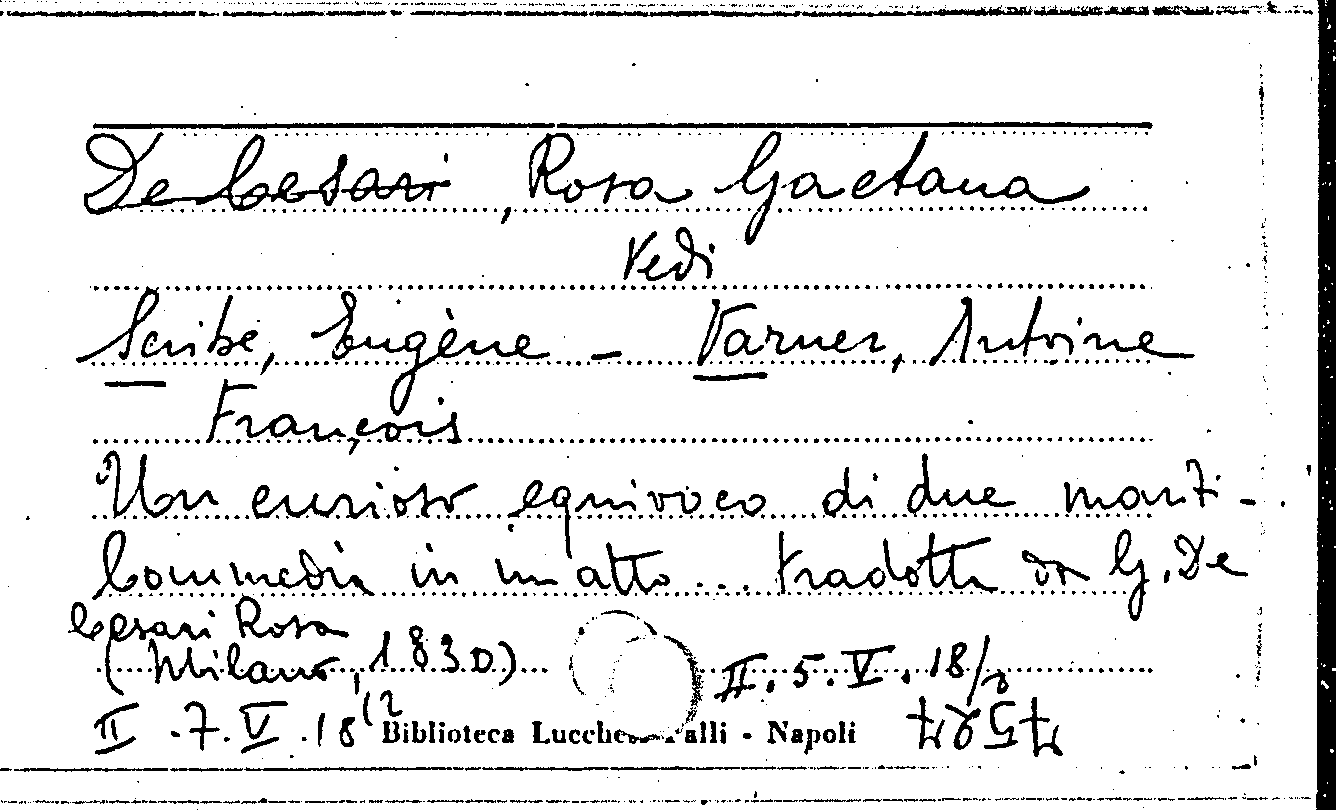 De Cesari, Rosa Gaetana
Vedi
Scribe, Eugène - Varner, Antoine
François
Un curioso equivoco di due mariti -
Commedia in un atto... tradotta da G. De
Cesari Rosa
(Milano, 1830) II. 5. V. 18/2
II. 7. V. 18/2 Biblioteca Lucchesi Palli - Napoli